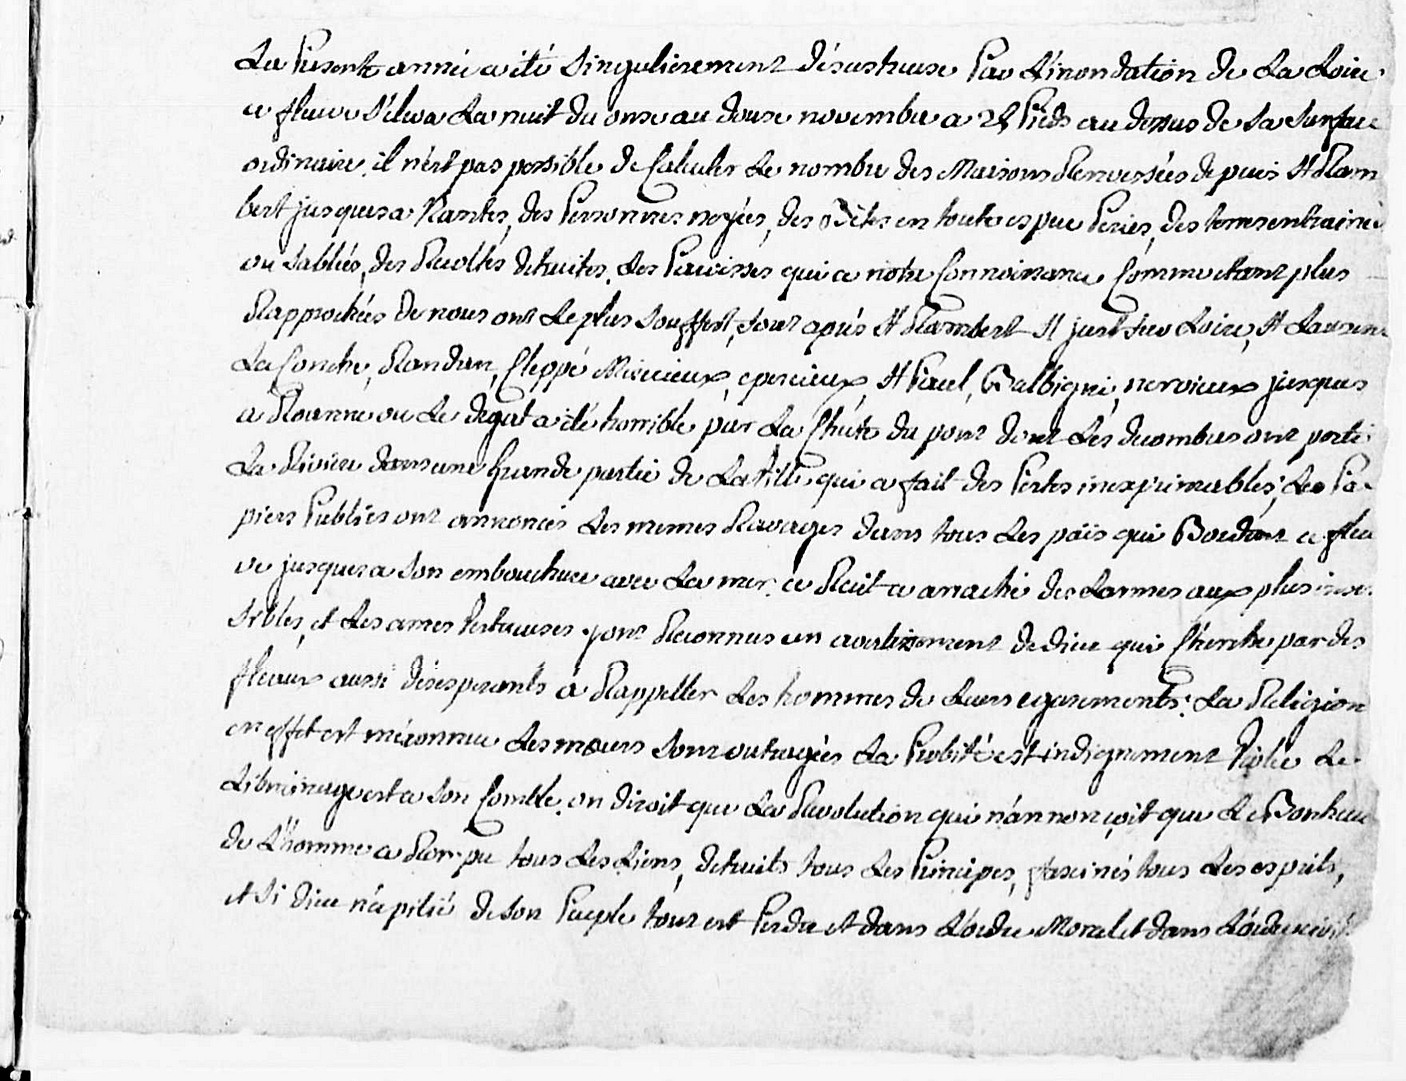 La Presente année a été singulierement désastreuse Par L'inondation de La Loire
ce fleuve s'éleva La nuit du onze au douze novembre a 25 Pieds au dessus de sa surface
ordinaire, il n'est pas possible de Calculer Le nombre des Maisons Renversées depuis St Ram
bert jusques a Nantes, des Personnes noyées, des Bêtes en toute espece Peries, des terres entrainées
ou sablées, des Recoltes detruites. Les Paroisses qui a notre Connoissance Comme etant plus
Rapprochées de nous ont Le plus souffert, sont après St Rambert St just sur Loire, St Laurent
La Conche, Randan, Cleppé Mizerieux, epercieux, St Paul, Balbigni, nervieux jusques
a Roanne ou Le degat a été horrible par La Chûte du pont dont Les decombres ont porté
La Riviere dans une Grande partie de La Ville qui a fait des Pertes inexprimables; Les Pa-
piers Publics ont annoncés Les memes Ravages dans tous Les païs qui Bordent ce fleu
ve jusques a son embouchure avec La mer. ce Recit a arraché des Larmes aux plus insen
sibles, et Les ames Vertueuses y ont Reconnus un avertissement de dieu qui Cherche par des
fleaux aussi désesperants a Rappeller Les hommes de Leurs egarements. La Religion
en effet est méconnue Les mœurs sont outragées La Probité est indignement Violée Le
Libertinage est a son Comble. on diroit que La Revolution qui n'annonçoit que Le Bonheur
de L'homme a Rompu tous Les Liens, detruits tous Les Principes, fascinés tous Les esprits,
et si dieu n'a pitié de son Peuple tout est Perdu et dans L'ordre Moral et dans L'ordre civil